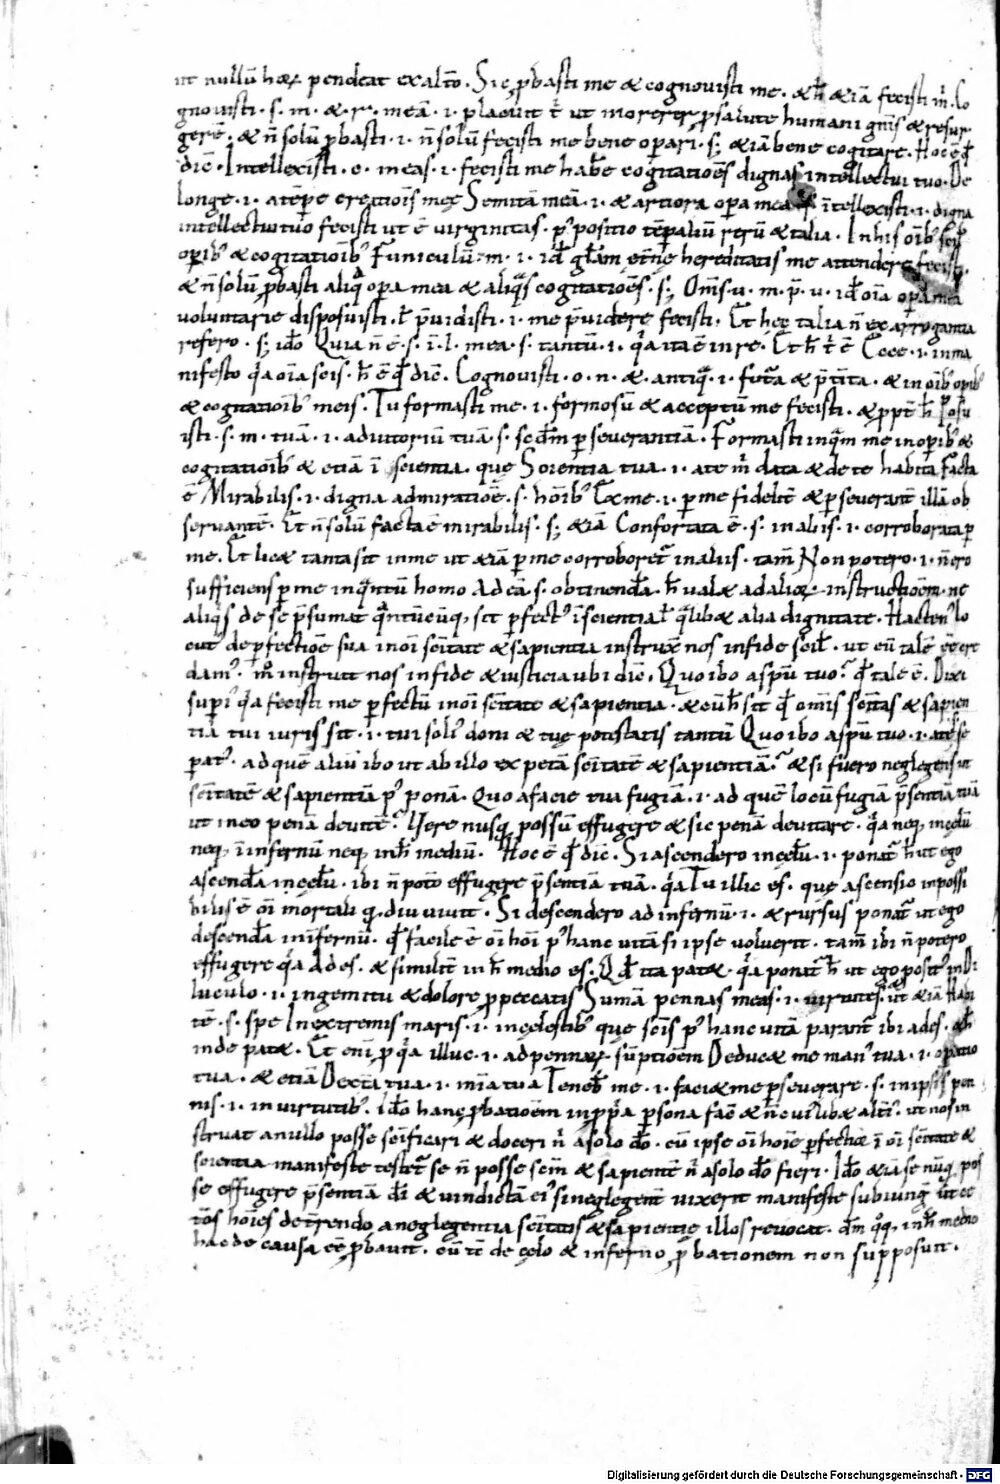 ut nullū hoꝝ pendeat ex alt̄o. Sic ꝓbasti me & cognovisti me. & h̄ & iā fecisti m̄. Co
gnovisti. s. m. & . r. meā. i. placuit t̄ ut morerer ꝓ salute humani gn̄is & resur
gerē. & n̄ solū ꝓbasti. i. n̄ solū fecisti me bene opari. s; & iā bene cogitare. Hoc ē qđ
dic̄. Intellexisti. c. meas. i. fecisti me hab̄e cogitatiōes dignas intellectui tuo. De
longe. i. a tēpe creatiōis meę Semitā meā. i. & artiora opa mea intellexisti. i. digna
intellectui tuo fecisti ut ē virginitas. ꝓpositio tēpaliū rerū & talia. In his oīb;
opib; & cogitatiōib; Funiculū. m. i. id hereditatis me attendere fecisti.
& n̄ solū ꝓbasti aliq̄ opa mea & aliq̄s cogitatiōes. s; Om̄s. v. m. p̄. v. id oīa opa mea
voluntarie disposuisti. ł p̄vidisti. i. me p̄videre fecisti. Et hęc talia n̄ ex arrogantia
refero. s; ido Quia n̄ ē. s. ī. l. mea. s. tantū. i. q̄a ita ē in re. Et h̄ ē Ecce. i. in ma
nifesto q̄a oīa scis. h̄ ē qđ dic̄. Cognovisti. o. n. & . antiq̄. i. futa & p̄tita. & in oīb; opib;
& cogitatiōib; meis. Tu formasti me. i. formosū & acceptū me fecisti. & ꝓpt h̄ Posu
isti. s. m. tuā. i. adiutoriū tuā. s. scdm pseverantiā. Formasti inquam me in opib; &
cogitatiōib; & etiā ī scientia. quę Scientia tua. i. a te m̄ data & de te habita Facta
ē Mirabilis. i. digna admiratiōe. s. hōib; Ex me. i. p me fidelit̄ & pseverant̄ illā ob
servantē. Et n̄ solū facta ē mirabilis. s; & iā Confortata ē. s. in aliis. i. corroborata p
me. Et licet tanta sit in me ut & iā p me corroboret̄ in aliis. tam̄ Non potero. i. n̄ ero
sufficiens p me inq̄ntū homo Ad eā. s. obtinendā. h̄ valet ad alioꝝ instructiōem. ne
aliq̄s de se p̄sumat q̄ntūcūq; sit pfect; ī scientia ł q̄libet alia dignitate. Hacten; lo
cut; de pfectiōe sua in oī scītate & sapientia instrux̄ nos in fide scił. ut eū talē eē cre
dam;. m̊ instruit nos in fide & iusticia ubi dic̄. Quo ibo a spū tuo? qđ tale ē. Dixi
supi; q̄a fecisti me pfectū in oī scītate & sapientia. & cū h̄ sit qđ om̄is scītas & sapien
tia tui iuris sit. i. tui soli; doni & tuę potestatis tantū Quo ibo a spū tuo. i. a te se
pat;. ad quē aliū ibo ut ab illo expetā scītatē & sapientiā? & si fuero neglegens ut
scītatē & sapientiā p; ponā. Quo a facie tua fugiā. i. ad quē locū fugiā p̄sentiā tuā
ut in eo penā devitē? Vere nusq̄ possū effugere & sic penā devitare. q̄a neq; in cęlū
neq; ī infernū neq; in h̄ mediū. Hoc ē qđ dic̄. Si ascendero in cęlū. i. ponat̄ h̄ ut ego
ascendā in cęlū. ibi n̄ poto effugere p̄sentiā tuā. q̄a Tu illic es. quę ascensio inpossi
bilis ē oī mortali q̄diu vivit. Si descendero ad infernū. i. & rursus ponat̄ ut ego
descendā in infernū. qđ facile ē oī hoī p; hanc vitā si ipse voluerit. tam̄ ibi n̄ potero
effugere q̄a Ades. & similit̄ in h̄ medio es. Qđ ita patet. q̄a ponat̄ h̄ ut ego posit; in Di
luculo. i. in gemitu & dolore ꝓ peccatis Sumā pennas meas. i. virtutes. & iā Habi
tē. s. spe In extremis maris. i. in cęlestib; quę scīs p; hanc vitā parant̄ ibi ades. &
inde patet. Et enī ꝓ q̄a illuc. i. ad pennaꝝ sūptiōem Deducet me man; tua. i. opatio
tua. & etiā Dext̄a tua. i. mīa tua Teneb̄ me. i. faciet me pseverare. s. in ipsis pen
nis. i. in virtutib;. Ido hanc ꝓbatiōem in ꝓp̄a psona fac̄ & n̄ cui;libet alt̄i;. ut nos in
struat a nullo posse scīficari & doceri n̄ a solo do. cū ipse oī hoīe pfectior ī oī scītate &
scientia manifeste testet̄ se n̄ posse scm̄ & sapientē n̄ a solo do fieri. Ido & iā se nūq̄ pos
se effugere p̄sentiā dī & vindictā ei; si neglegent̄ vixerit manifeste subiungit ut ce
tōs hoīes deterrendo a neglegentia scītatis & sapientię illos revocat. dm q̊q; in h̄ medio
hac de causa eē ꝓbavit. cū tē de cęlo & inferno ꝓbationem non supposuit.